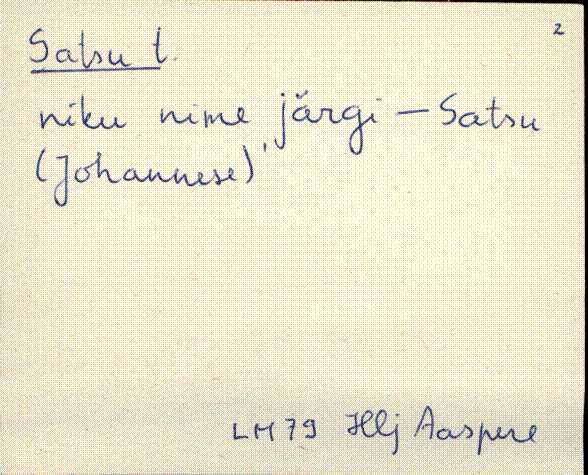 2
Satsu t.
niku nime järgi – Satsu
(Johannese)'
LM 79 Hlj Aaspere